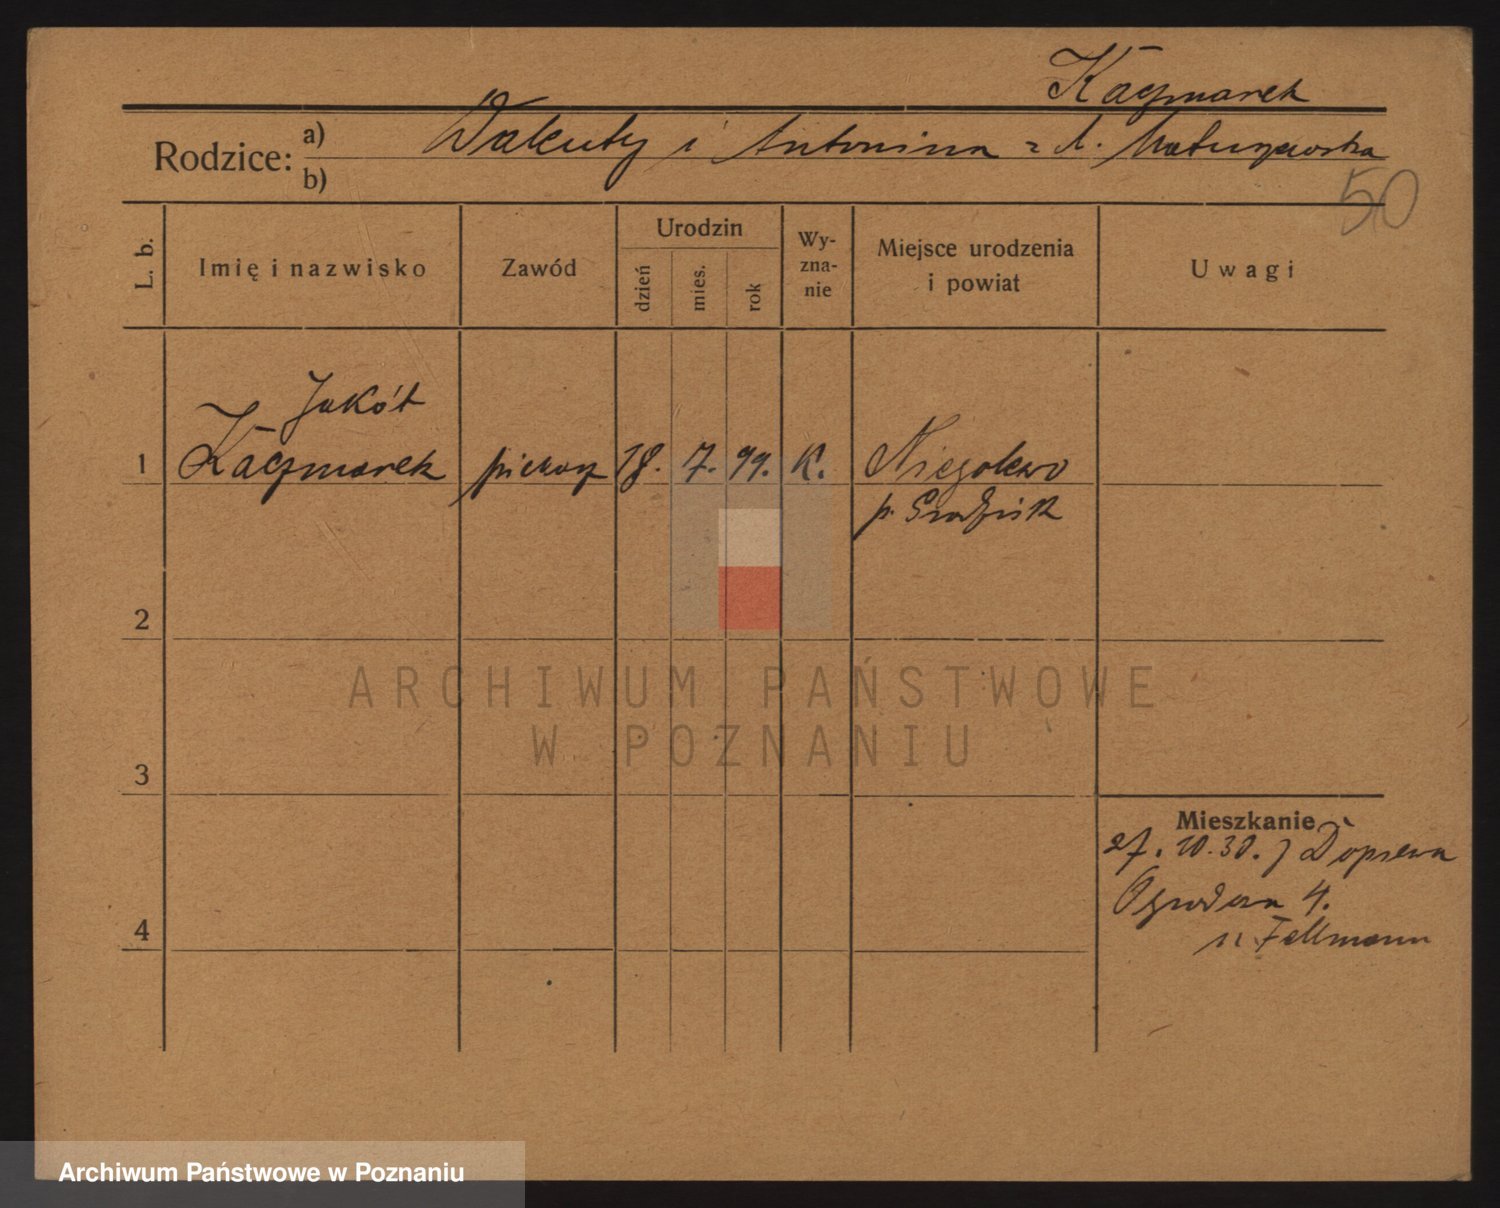 Kaczmarek
Rodzice: a) Walenty i Antonina z d. Matuszewska
b)
50
L. b. Imię i nazwisko Zawód Urodzin dzień mies. rok Wy-zna-nie Miejsce urodzenia i powiat Uwagi
Jakób
1 Kaczmarek piekarz 18. 7. 99. K. Niegolewo
p. Grodzisk
2
ARCHIWUM PAŃSTWOWE
W POZNANIU
3
Mieszkanie
27. 10. 30. z Dopiewa
Ogrodowa 4.
4
u Fellmann
Archiwum Państwowe w Poznaniu